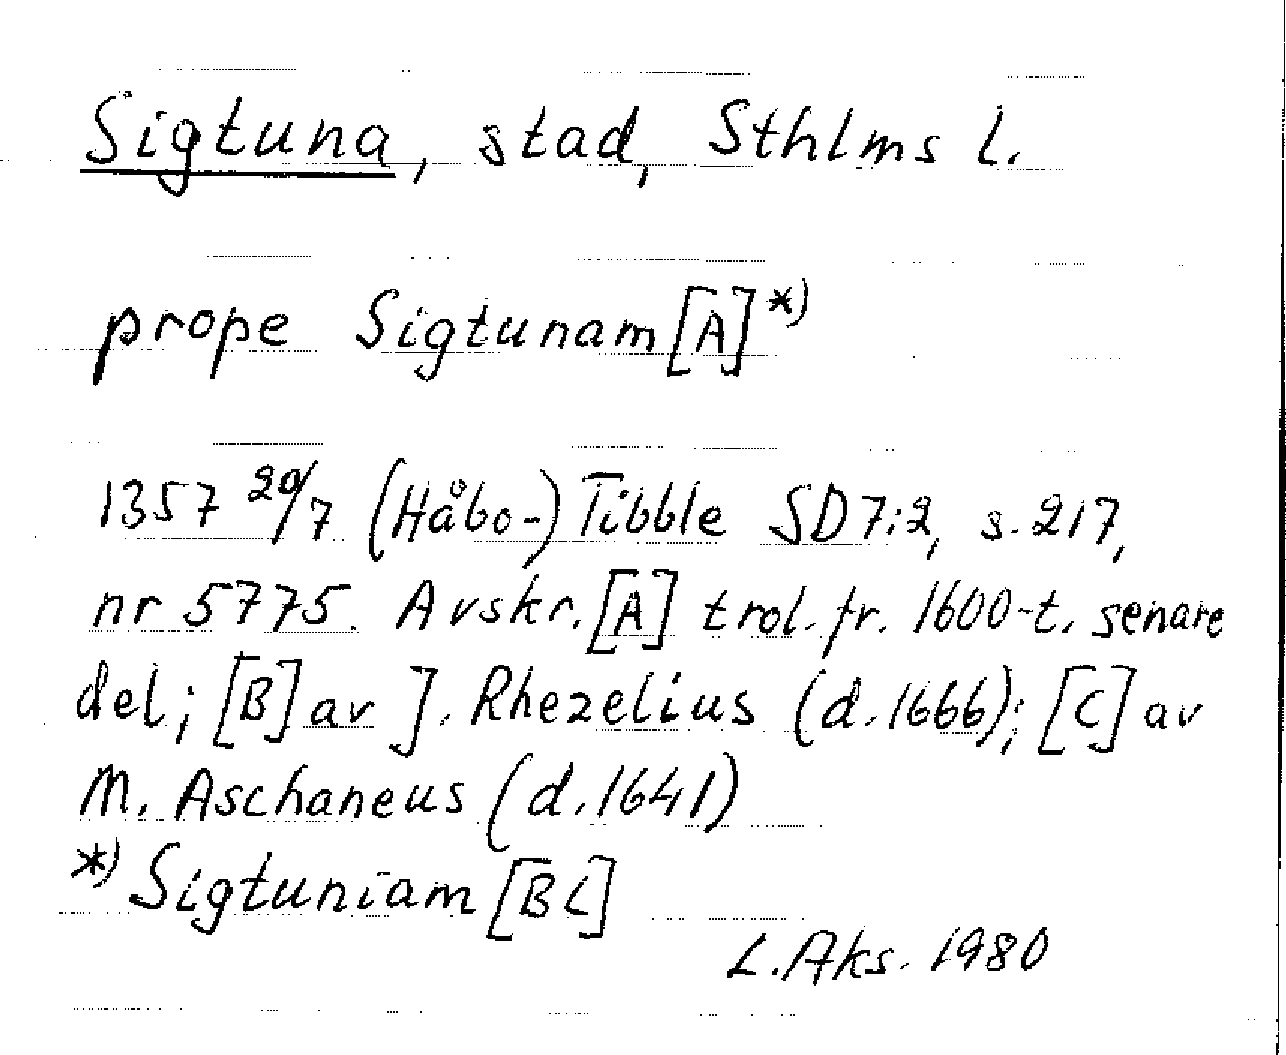 Sigtuna, stad, Sthlms l.
prope Sigtunam [A]*)
1357 20/7 (Håbo-) Tibble SD 7:2, s. 217,
nr 5775. Avskr. [A] trol. fr. 1600-t. senare
del; [B] av J. Rhezelius (d. 1666); [C] av
M. Aschaneus (d. 1641)
*) Sigtuniam [BC]
L. Aks. 1980